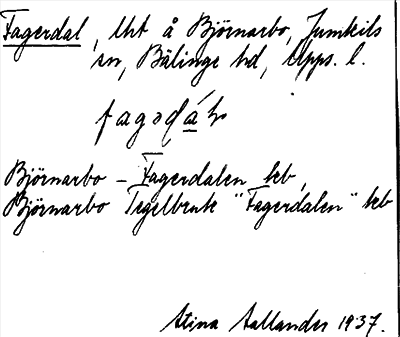 Fagerdal, lht å Björnarbo, Jumkils
sn, Bälinge hd, Upps. l.
Björnarbo – Fagerdalen leb,
Björnarbo Tegelbruk "Fagerdalen" leb
Stina Sallander 1937.